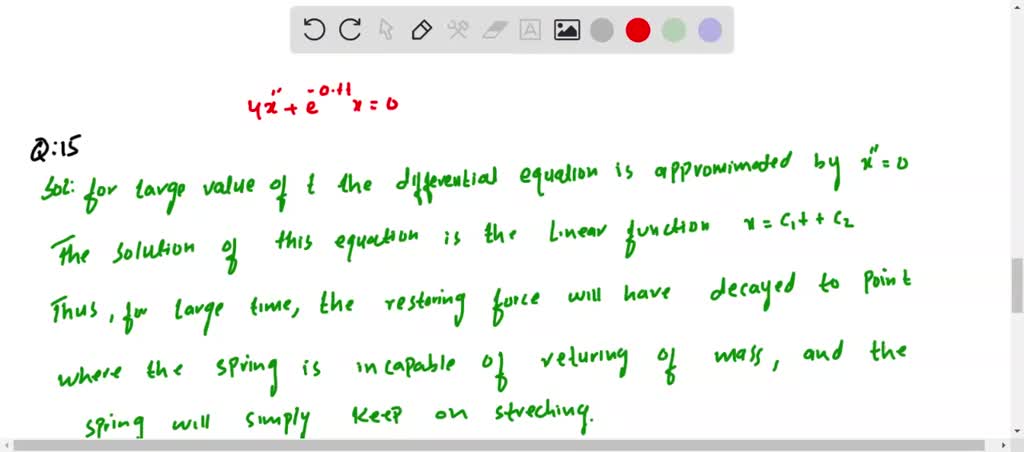 4x'' + e^-0.1t x = 0
Q:15
Sol: for large value of t the differential equation is approximated by x'' = 0
The solution of this equation is the Linear function x = C₁t + C₂
Thus, for large time, the restoring force will have decayed to point
where the spring is incapable of returing of mass, and the
spring will simply keep on streching.